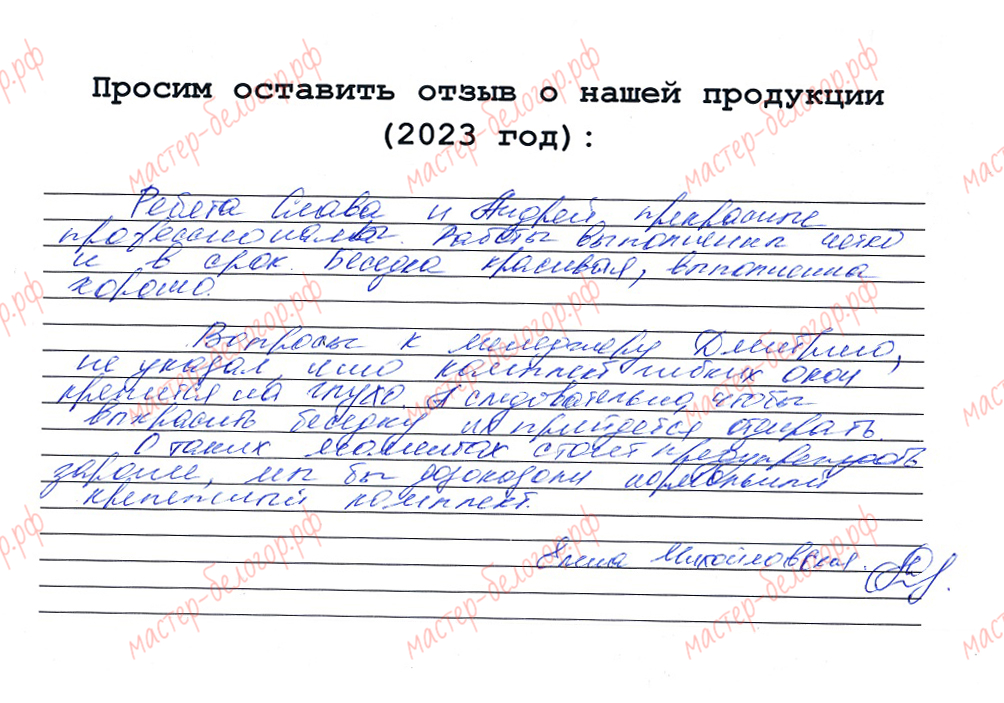 Просим оставить отзыв о нашей продукции
(2023 год):
Ребята Слава и Андрей, прекрасные
профессионалы. Работы выполнены четко
и в срок. Беседка красивая, выполнена
хорошо.
Вопросы к менеджеру Дмитрию,
не указал, что комплект гибких окон
крепится на глухо. А следовательно, чтобы
выкрасить беседку их прийдется отдирать.
О таких моментах стоит предупреждать
заранее, мы бы дозаказали нормальный
крепежный комплект.
Михайловская.
мастер-белогор.рф